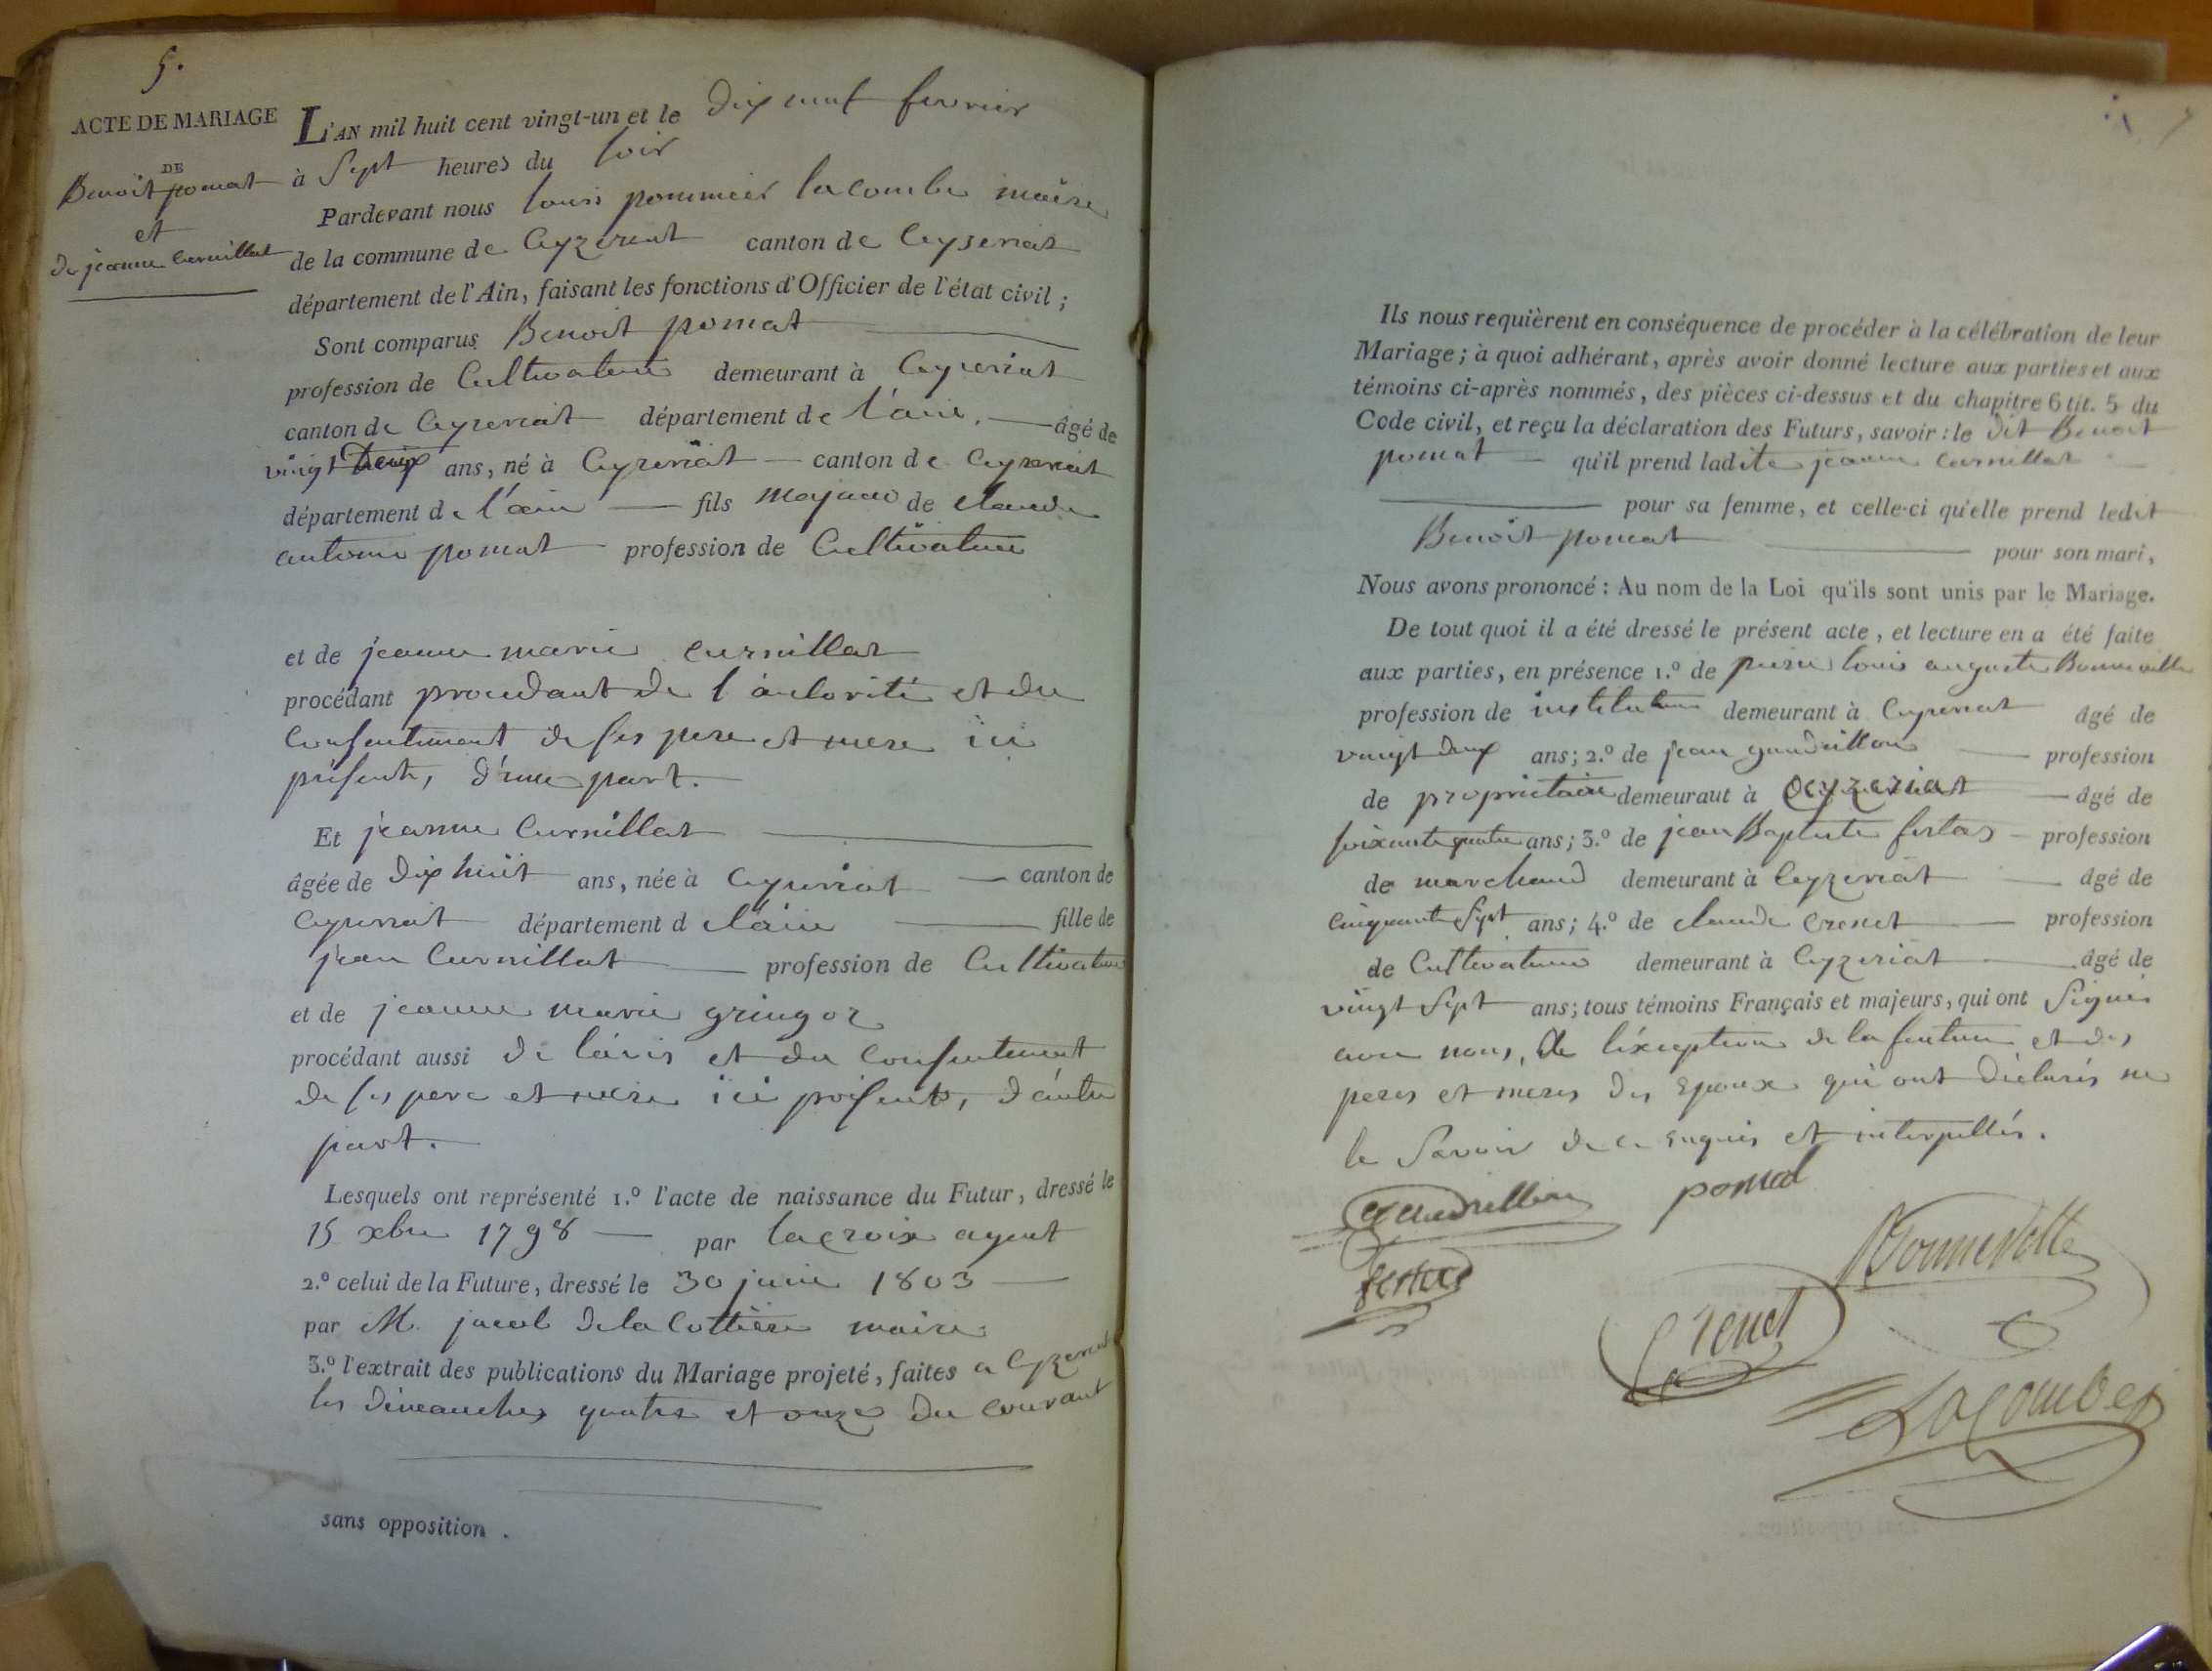 5.
ACTE DE MARIAGE
DE
Benoit pomat
et
de jeanne Curnillat
L'AN mil huit cent vingt-un et le dix neuf fevrier
à Sept heures du soir
Pardevant nous louis pommier lacombe maire
de la commune de Ceyzeriat canton de Ceyseriat
département de l'Ain, faisant les fonctions d'Officier de l'état civil ;
Sont comparus Benoit pomat
profession de Cultivateur demeurant à Ceyzeriat
canton de Ceyzeriat département de l'ain. âgé de
vingt Deux ans, né à Ceyzeriat canton de Ceyzeriat
département de l'ain fils majeur de claude
antoine pomat profession de Cultivateur
et de jeanne marie curnillat
procédant procedant de l'autorité et du
consentement de ses pere et mere ici
présents, d'une part.
Et jeanne Curnillat
âgée de dix huit ans, née à Ceyzeriat canton de
Ceyzeriat département d l'ain fille de
jean Curnillat profession de Cultivateur
et de jeanne marie gringoz
procédant aussi de l'avis et du consentement
de ses pere et mere ici présents, d'autre
part.
Lesquels ont représenté 1.º l'acte de naissance du Futur, dressé le
15 xbre 1798 par lacroix agent
2.º celui de la Future, dressé le 30 juin 1803
par M. jacob de la Cottière maire
3.º l'extrait des publications du Mariage projeté, faites a Cyzeriat
les dimanches quatre et onze du courant
sans opposition .
Ils nous requièrent en conséquence de procéder à la célébration de leur
Mariage ; à quoi adhérant, après avoir donné lecture aux parties et aux
témoins ci-après nommés, des pièces ci-dessus et du chapitre 6 tit. 5 du
Code civil, et reçu la déclaration des Futurs, savoir : le dit Benoit
pomat qu'il prend ladite jeanne curnillat
pour sa femme, et celle-ci qu'elle prend ledit
Benoit pomat pour son mari,
Nous avons prononcé : Au nom de la Loi qu'ils sont unis par le Mariage.
De tout quoi il a été dressé le présent acte, et lecture en a été faite
aux parties, en présence 1.º de pierre louis auguste Bonnevolle
profession de instituteur demeurant à Ceyzeriat âgé de
vingt deux ans ; 2.º de jean gaudrillon profession
de propriétaire demeurant à Ceyzeriat âgé de
soixante quatre ans ; 3.º de jean Baptiste fertas profession
de marchand demeurant à Ceyzeriat âgé de
cinquante Sept ans ; 4.º de claude Crenet profession
de Cultivateur demeurant à Ceyzeriat âgé de
vingt Sept ans ; tous témoins Français et majeurs, qui ont Signés
avec nous, de l'exception de la future et des
peres et meres des epoux qui ont déclarés ne
le Savoir de ce enquis et interpellés.
Gaudrillon pomat
Bonnevolle
fertas
Crenet
Lacombe